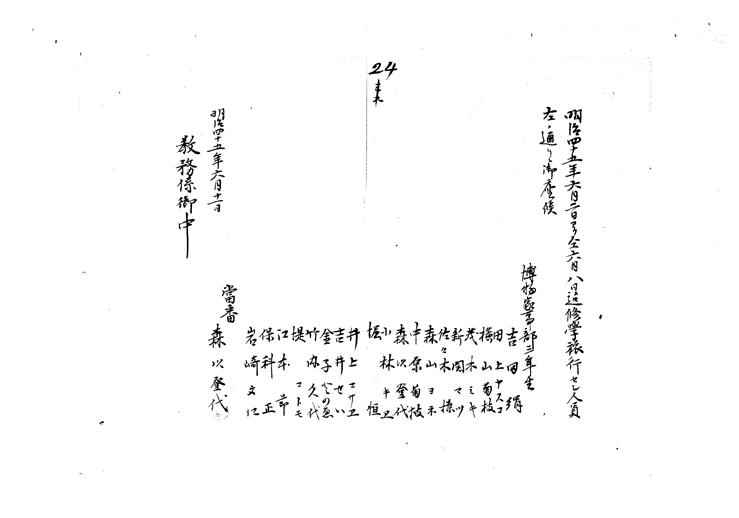 明治四十五年六月二日ヨリ仝六月八日迄修學旅行セシ人員
左ノ通リ御座候
博物家事部三年生
吉田絹
田上ヤスコ
梅山菊枝
茂木ミキ
新関マツ
佐々木操
森山ヨネ
中原菊枝
森以登代
小林キヱ
堀恒
井上ユサヱ
吉井せい
金子
竹内久代
堤コトモ
江本節
保科正
岩崎文江
當番
森以登代
24
明治四十五年六月十一日
教務係御中